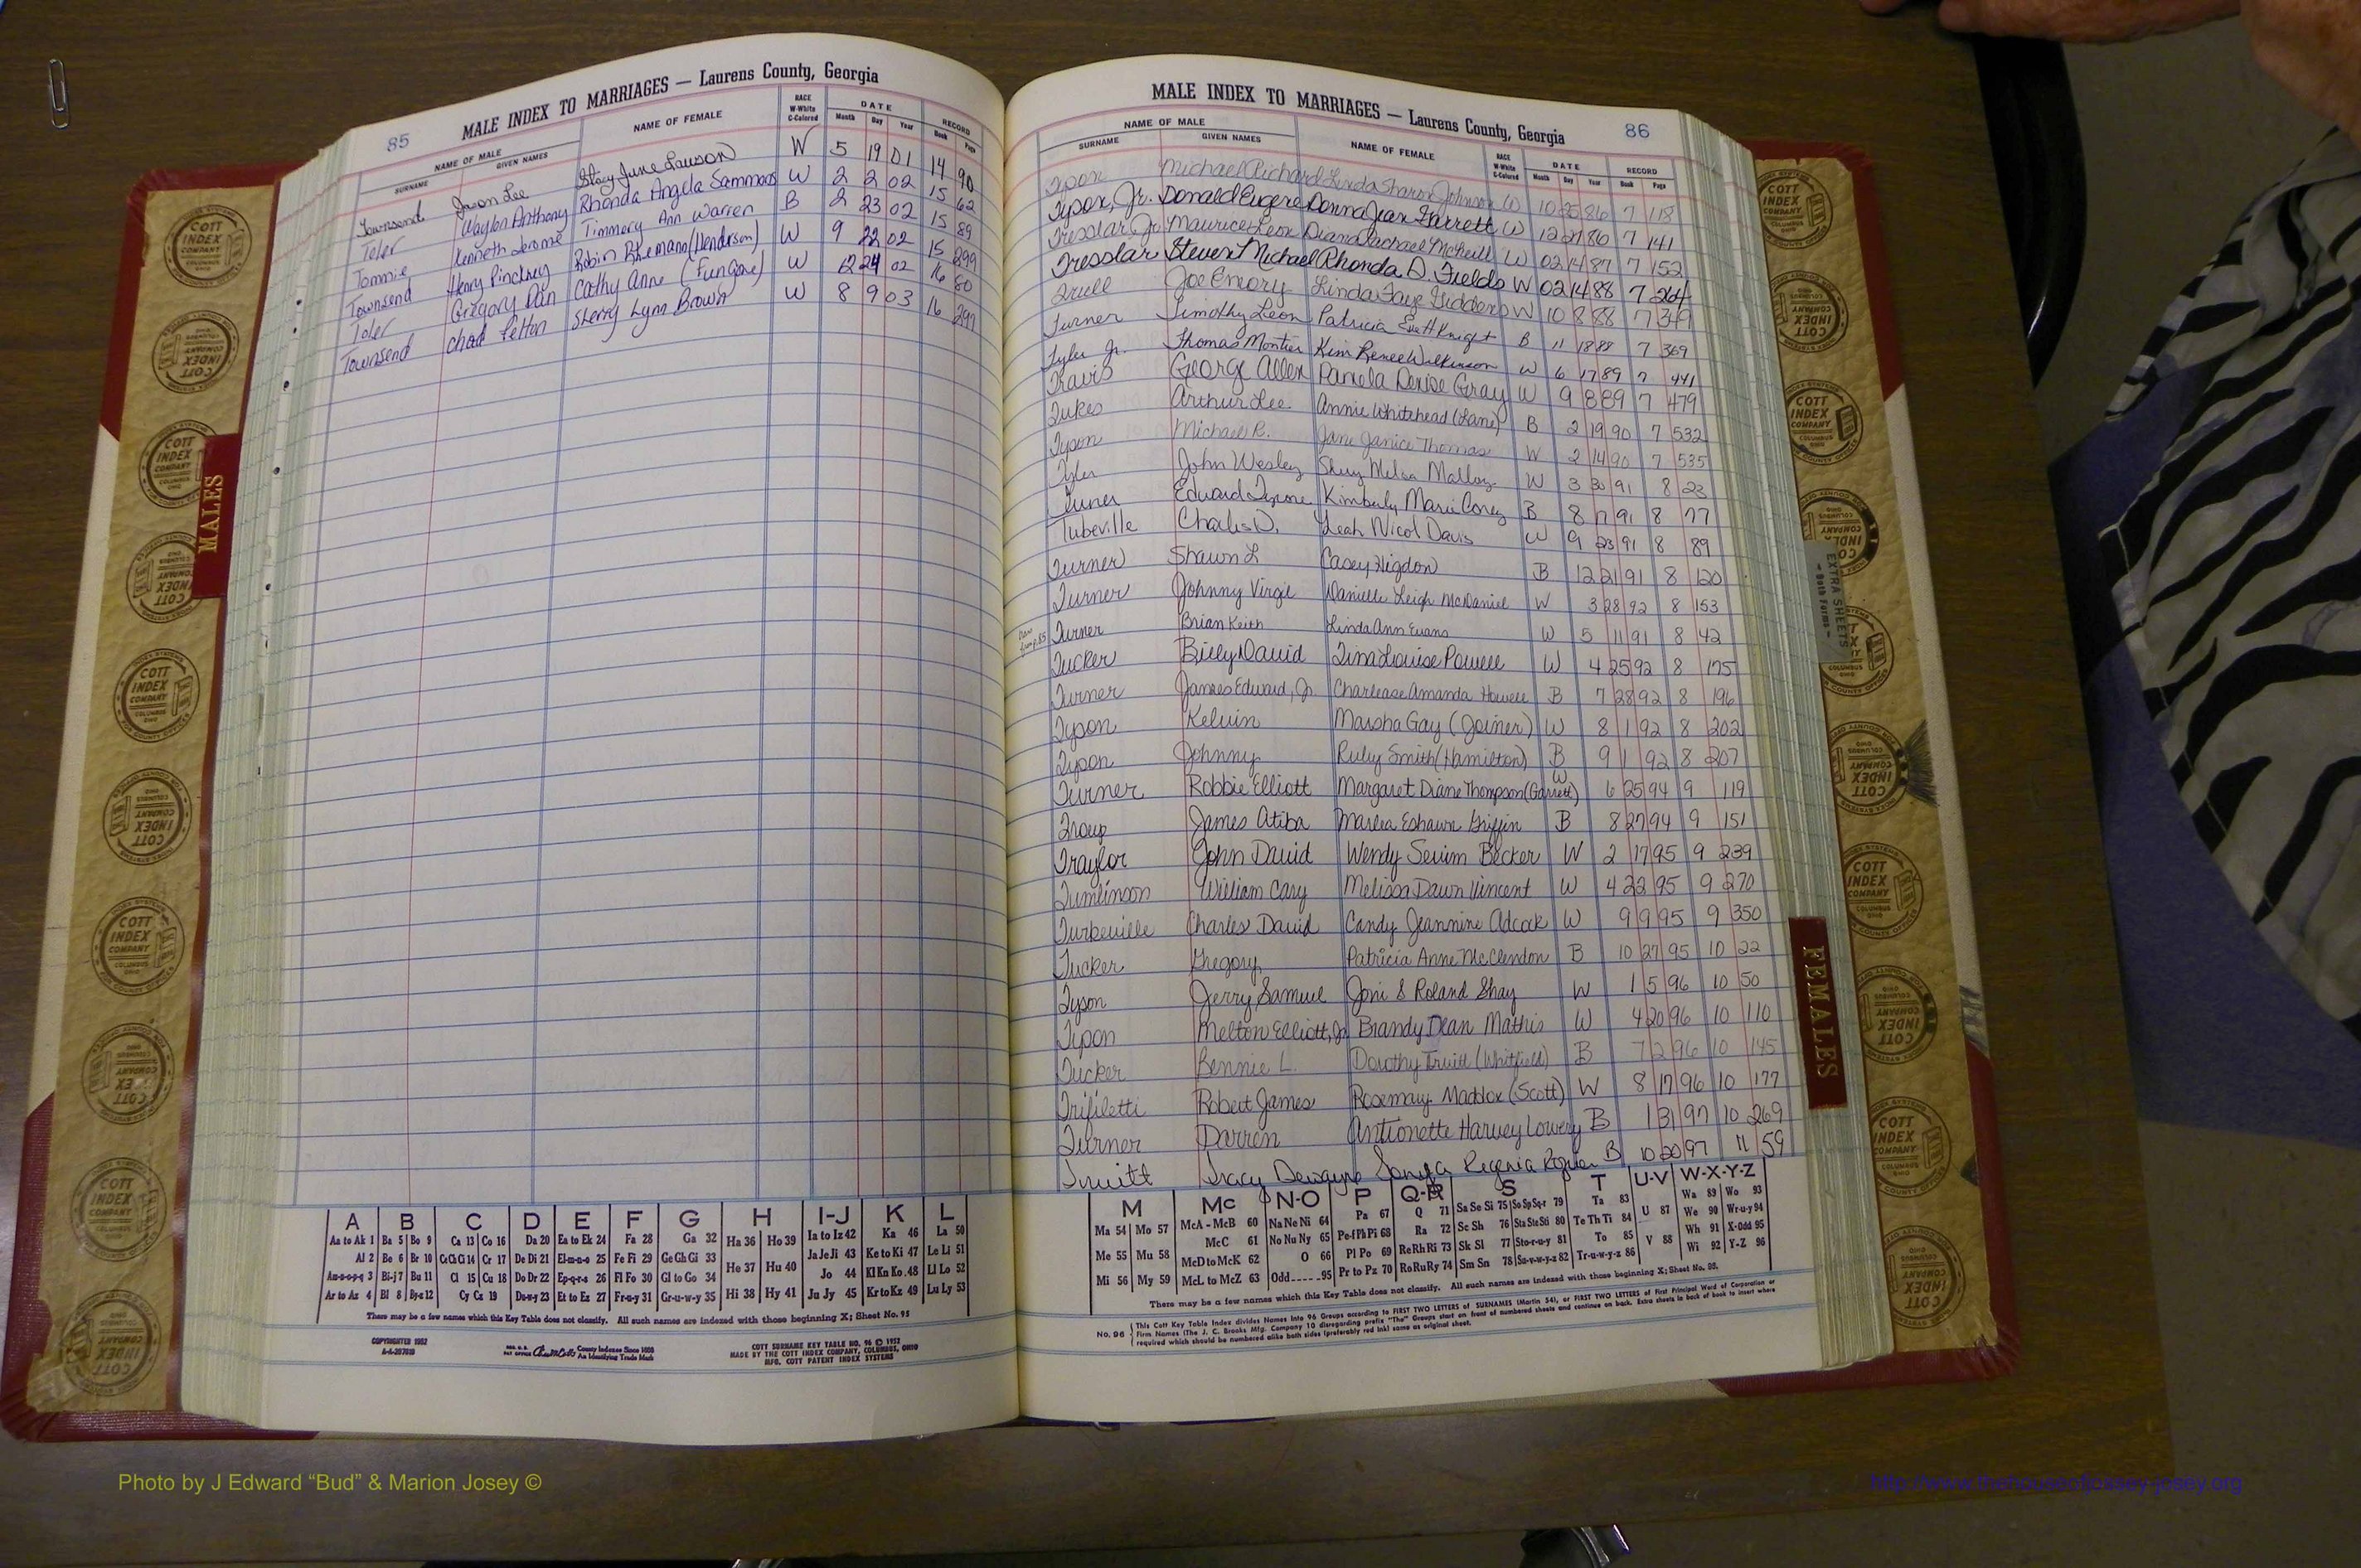 85
MALE INDEX TO MARRIAGES — Laurens County, Georgia
NAME OF MALE
SURNAME GIVEN NAMES NAME OF FEMALE RACE W-White C-Colored DATE Month Day Year RECORD Book Page
Townsend Jason Lee Stacy June Lawson W 5 19 01 14 90
Toler Waylon Anthony Rhonda Angela Sammons W 2 2 02 15 62
Tommie Kenneth Jerome Timmery Ann Warren B 2 23 02 15 89
Townsend Henry Pinckney Robin (Henderson) W 9 22 02 15 299
Toler Gregory Dan Cathy Anne W 12 24 02 16 80
Townsend Chad Felton Sherry Lynn Brown W 8 9 03 16 297
A B C D E F G H I-J K L
Aa to Ak 1 Ba 5 Bo 9 Ca 13 Co 16 Da 20 Ea to Ek 24 Fa 28 Ga 32 Ha 36 Ho 39 Ia to Iz 42 Ka 46 La 50
Al 2 Be 6 Br 10 Ce Ch Ci 14 Cr 17 De Di 21 El-m-n-o 25 Fe Fi 29 Ge Gh Gi 33 He 37 Hu 40 Ja Je Ji 43 Ke to Ki 47 Le Li 51
Am-n-o-p-q 3 Bi-j 7 Bu 11 Cl 15 Cu 18 Do Dr 22 Ep-q-r-s 26 Fl Fo 30 Gl to Go 34 Jo 44 Kl Kn Ko 48 Ll Lo 52
Ar to Az 4 Bl 8 By-z 12 Cy Cz 19 Du-w-y 23 Et to Ez 27 Fr-u-y 31 Gr-u-w-y 35 Hi 38 Hy 41 Ju Jy 45 Kr to Kz 49 Lu Ly 53
There may be a few names which this Key Table does not classify. All such names are indexed with those beginning X; Sheet No. 95
COPYRIGHTED 1952
REG. U.S. PAT OFFICE County Indexes Since 1888 An Identifying Trade Mark
COTT SURNAME KEY TABLE NO. 96 © 1952
MADE BY THE COTT INDEX COMPANY, COLUMBUS, OHIO
MFG. COTT PATENT INDEX SYSTEMS
MALE INDEX TO MARRIAGES — Laurens County, Georgia
86
NAME OF MALE
SURNAME GIVEN NAMES NAME OF FEMALE RACE W-White C-Colored DATE Month Day Year RECORD Book Page
Tyson Michael Richard Linda Sharon Johnson W 10 25 86 7 118
Tyson, Jr. Donald Eugene Donna Jean Garrett W 12 27 86 7 141
Tresslar Jr. Maurice Leon Diana Rachael McNeill W 02 14 87 7 152
Tresslar Steven Michael Rhonda D. Fields W 02 14 88 7 264
Truell Joe Emory Linda Faye Giddens W 10 8 88 7 349
Turner Timothy Leon Patricia Knight B 11 18 88 7 369
Tyler Jr. Thomas Montier Kim Renee Wilkinson W 6 17 89 7 441
Travis George Allen Pamela Denise Gray W 9 8 89 7 479
Tukes Arthur Lee Annie Whitehead (Lane) B 2 19 90 7 532
Tyson Michael R. Jane Janice Thomas W 2 14 90 7 535
Tyler John Wesley Melba Malloy W 3 30 91 8 23
Turner Edward Tyrone Kimberly Marie B 8 17 91 8 77
Tubeville Charles D. Leah Nicol Davis W 9 23 91 8 89
Turner Shawn L Casey Higdon B 12 21 91 8 120
Turner Johnny Virgil Danielle Leigh McDaniel W 3 28 92 8 153
Turner Brian Keith Linda Ann Evans W 5 11 91 8 42
Tucker Billy David Tina Louise Powell W 4 25 92 8 175
Turner James Edward, Jr. Charlease Amanda Howell B 7 28 92 8 196
Tyson Kelvin Marsha Gay (Joiner) W 8 1 92 8 202
Tyson Johnny Ruby Smith (Hamilton) B 9 1 92 8 207
Turner Robbie Elliott Margaret Diane Thompson (Garrett) W 6 25 94 9 119
Troup James Atiba Marlea Eshawn Griffin B 8 27 94 9 151
Traylor John David Wendy Sevim Becker W 2 17 95 9 239
Tumlinson William Cary Melissa Dawn Vincent W 4 22 95 9 270
Turbeville Charles David Candy Jeannine Adcock W 9 9 95 9 350
Tucker Gregory Patricia Anne McClendon B 10 27 95 10 22
Tyson Jerry Samuel Joni S Roland Shay W 1 5 96 10 50
Tyson Melton Elliott, Jr. Brandy Dean Mathis W 4 20 96 10 110
Tucker Bennie L. Dorothy Truitt (Whitfield) B 7 2 96 10 145
Trifiletti Robert James Rosemary Maddox (Scott) W 8 17 96 10 177
Turner Darren Antionette Harvey Lowery B 1 31 97 10 269
Truitt Tracy Dewayne Sonya Regenia B 10 20 97 11 59
M Mc N-O P Q-R S T U-V W-X-Y-Z
Ma 54 Mo 57 McA - McB 60 Na Ne Ni 64 Pa 67 Q 71 Sa Se Si 75 So Sp Sq-r 79 Ta 83 U 87 Wa 89 Wo 93
Me 55 Mu 58 McC 61 No Nu Ny 65 Pe-f Ph Pi 68 Ra 72 Sc Sh 76 Sta Ste Sti 80 Te Th Ti 84 We 90 Wr-u-y 94
McD to McK 62 O 66 Pl Po 69 Re Rh Ri 73 Sk Sl 77 Sto-r-u-y 81 To 85 V 88 Wh 91 X-Odd 95
Mi 56 My 59 McL to McZ 63 Odd-----95 Pr to Pz 70 Ro Ru Ry 74 Sm Sn 78 Su-v-w-y-z 82 Tr-u-w-y-z 86 Wi 92 Y-Z 96
There may be a few names which this Key Table does not classify. All such names are indexed with those beginning X; Sheet No. 95.
No. 96 This Cott Key Table Index divides Names into 96 Groups according to FIRST TWO LETTERS of SURNAMES (Martin 54), or FIRST TWO LETTERS of First Principal Word of Corporation or
Firm Names (The J. C. Brooks Mfg. Company 10 disregarding prefix "The") Groups start on front of numbered sheets and continue on back. Extra sheets in back of book to insert where
required which should be numbered alike both sides (preferably red ink) same as original sheet.
MALES
FEMALES
EXTRA SHEETS
COTT INDEX COMPANY COLUMBUS OHIO
Photo by J Edward “Bud” & Marion Josey ©
http://www.thehouseofjossey-josey.org